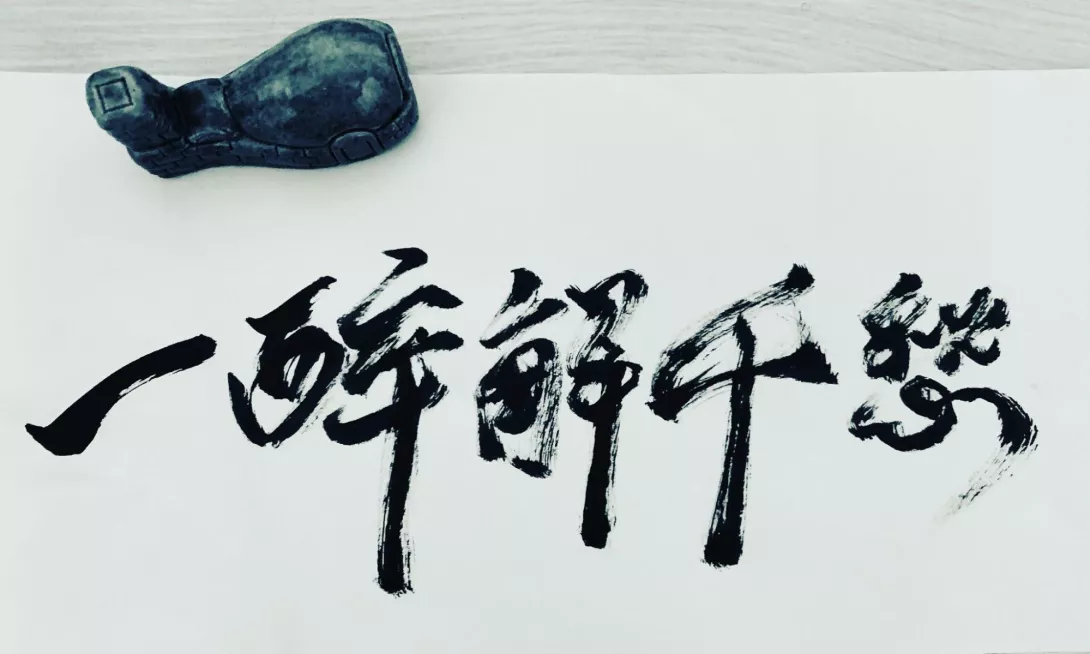 一醉解千愁